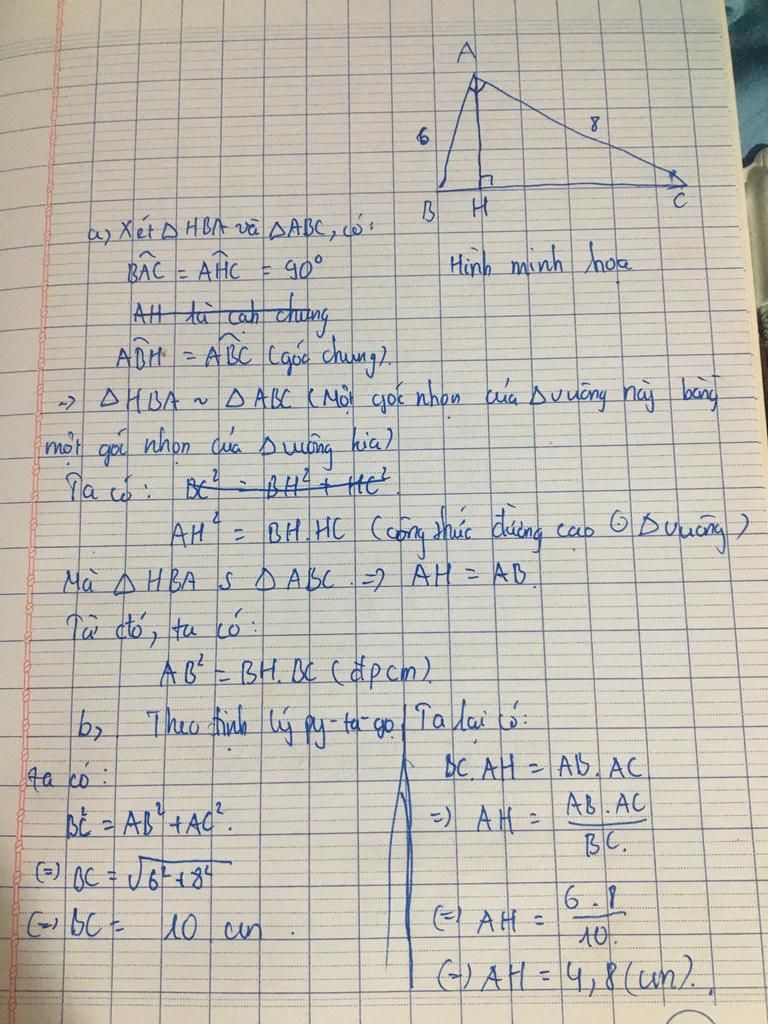 A
6
8
B H C
a, Xét Δ HBA và Δ ABC, có:
BÂC = AĤC = 90°
Hình minh họa
AH là cạnh chung
AB̂H = AB̂C (góc chung).
→ Δ HBA ~ Δ ABC (Một góc nhọn của Δ vuông này bằng
một góc nhọn của Δ vuông kia)
Ta có: BC² = BH² + HC²
AH² = BH.HC (công thức đường cao Δ vuông)
Mà Δ HBA ᔕ Δ ABC => AH = AB.
Từ đó, ta có:
AB² = BH.BC (đpcm).
b, Theo định lý py-ta-go
ta có:
BC² = AB² + AC².
(=) BC = √6² + 8²
(=) BC = 10 cm.
Ta lại có:
BC.AH = AB.AC
=) AH = AB.AC / BC.
(=) AH = 6.8 / 10.
(=) AH = 4,8 (cm).